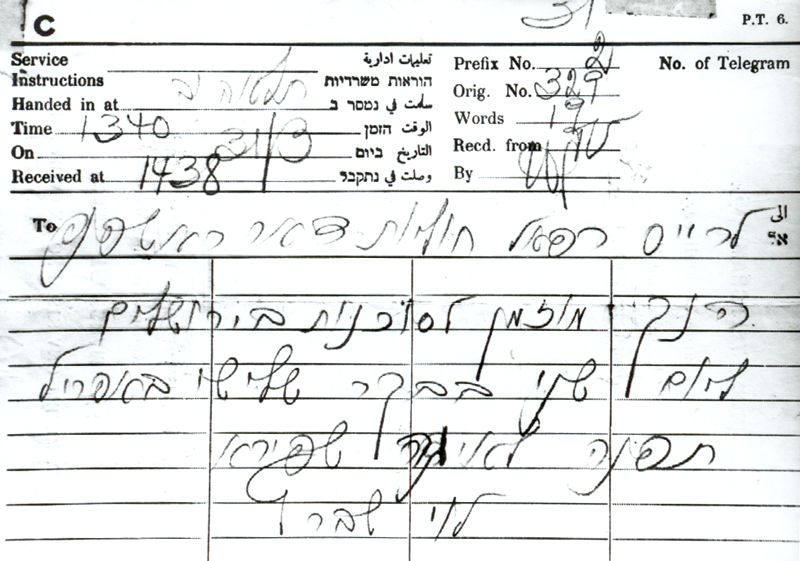 31
C
P.T. 6.
Service
Instructions
تعليمات ادارية
הוראות משרדיות
Prefix No. 2
No. of Telegram
Handed in at
سلمت في נמסר ב
Orig. No. 329
Time 1340
الوقت הזמן
Words 19
On 31/3
التاريخ ביום
Recd. from
Received at 1438
وصلت في נתקבל
By
To
الى
אל
לרייס רפאל חוליות דאר ראשפינה
הנך מוזמן לסוכנות בירושלים
ליום שני בבקר שלישי באפריל
תפנה שפירא
לוי שברץ